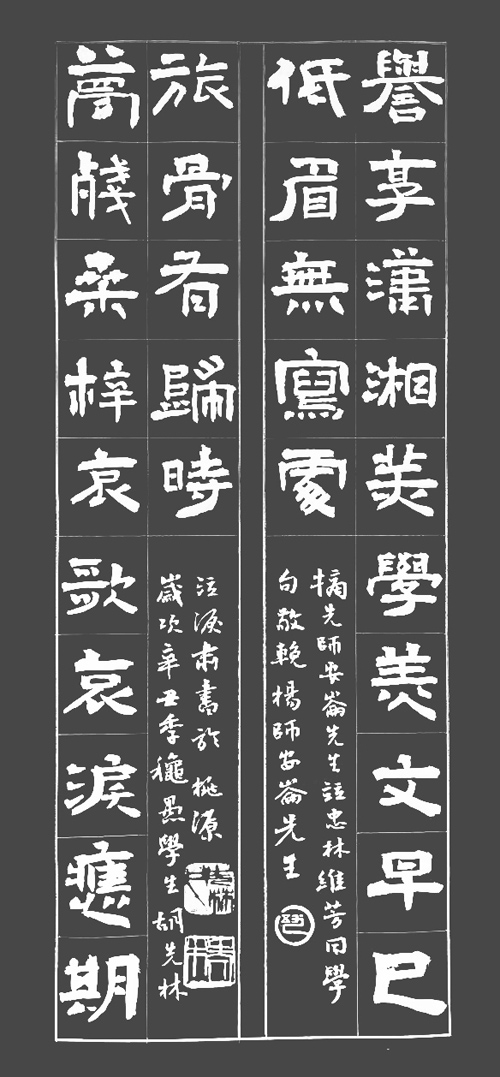 譽享瀟湘美學美文早已
低眉無寫處
摘先師安崙先生忠林維芳同學
句敬輓楊師安崙先生
旅骨有歸時
泣淚書於桃源
歲次辛丑季穐愚學生胡先林
夢殘桑梓哀歌哀淚應期